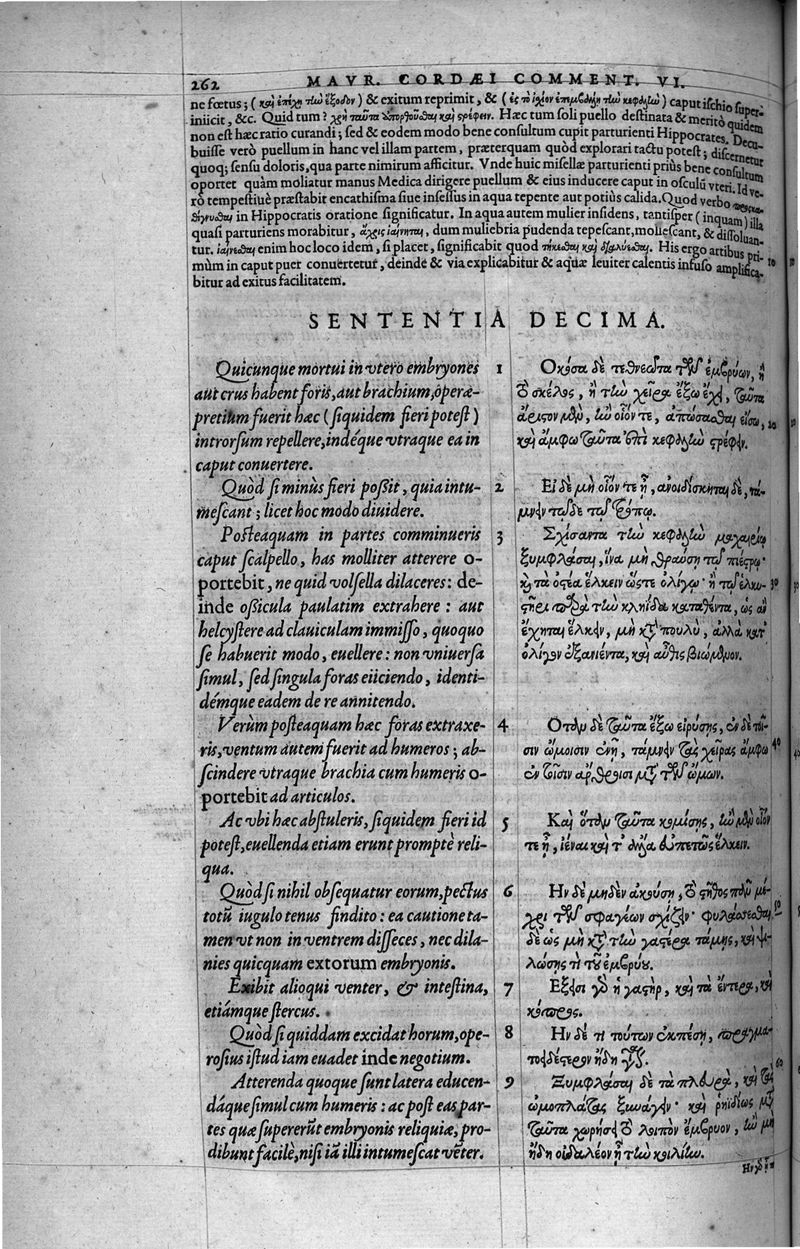 262 MAVR. CORDÆI COMMENT. VI.
ne fœtus; (καὶ ἐπέχῃ τὴν ἔξοδον) & exitum reprimit, & (ἐς τὸ ἰχίον τὴν κεφαλὴν) caput ischio super-
iniicit, &c. Quid tum? χρὴ ταῦτα καὶ τρέφειν. Hæc tum soli puello destinata & meritò quidem
non est hæc ratio curandi; sed & eodem modo bene consultum cupit parturienti Hippocrates. Decu-
buisse verò puellum in hanc vel illam partem, præterquam quòd explorari tactu potest; discernetur
quoq; sensu doloris, qua parte nimirum afficitur. Vnde huic misellæ parturienti priùs bene consultum
oportet quàm moliatur manus Medica dirigere puellum & eius inducere caput in osculū vteri. Id ve-
rò tempestiuè præstabit encathisma siue insessus in aqua tepente aut potiùs calida. Quod verbo
in Hippocratis oratione significatur. In aqua autem mulier insidens, tantisper (inquam) illa
quasi parturiens morabitur, ἄχρις dum muliebria pudenda tepescant, mollescant, & dissoluan-
tur. enim hoc loco idem, si placet, significabit quod His ergo artibus pri-
mùm in caput puer conuertetur, deinde & via explicabitur & aquæ leuiter calentis infuso amplifica-
bitur ad exitus facilitatem.
SENTENTIA DECIMA.
Quicunque mortui in vtero embryones
aut crus habent foris, aut brachium, operæ-
pretium fuerit hæc (siquidem fieri potest)
introrsum repellere, indéque vtraque ea in
caput conuertere.
Quòd si minùs fieri possit, quia intu-
mescant; licet hoc modo diuidere.
Posteaquam in partes comminueris
caput scalpello, has molliter atterere o-
portebit, ne quid volsella dilaceres: de-
inde ossicula paulatim extrahere: aut
helcystere ad clauiculam immisso, quoquo
se habuerit modo, euellere: non vniuersa
simul, sed singula foras eiiciendo, identi-
démque eadem de re annitendo.
Verùm posteaquam hæc foras extraxe-
ris, ventum autem fuerit ad humeros; ab-
scindere vtraque brachia cum humeris o-
portebit ad articulos.
Ac vbi hæc abstuleris, siquidem fieri id
potest, euellenda etiam erunt promptè reli-
qua.
Quòd si nihil obsequatur eorum, pectus
totū iugulo tenus findito: ea cautione ta-
men vt non in ventrem disseces, nec dila-
nies quicquam extorum embryonis.
Exibit alioqui venter, & intestina,
etiámque stercus.
Quòd si quiddam excidat horum, ope-
rosius istud iam euadet inde negotium.
Atterenda quoque sunt latera educen-
dáque simul cum humeris: ac post eas par-
tes quæ supererūt embryonis reliquiæ, pro-
dibunt facilè, nisi iā illi intumescat vēter.
1 Οκόσα δὲ τεθνεῶτα τῶν ἐμβρύων, ἢ
τὸ σκέλος, ἢ τὴν χεῖρα ἔξω ἔχῃ, ταῦτα
ἄριστον μὲν, ἢν οἷόν τε, ἀπώσασθαι εἴσω,
καὶ ἄμφω ταῦτα ἐπὶ κεφαλὴν τρέφειν.
2 Εἰ δὲ μὴ οἷόν τε ᾖ, ἀνοιδίσκηται δὲ, τά-
μνειν τόνδε τὸν τρόπον.
3 Σχίσαντα τὴν κεφαλὴν μαχαιρίῳ
ξυμφλάσαι, ἵνα μὴ θραύσῃ τοῦ
καὶ τὰ ὀστέα ἕλκειν ὥστε ὀλίγῳ· ἢ τοῦ ἑλκυ-
στῆρι παρὰ τὴν κληῖδα καταθέντα, ὡς ἂν
ἔχηται ἕλκειν, μὴ κατὰ πουλὺ, ἀλλὰ κατ'
ὀλίγον ἐξανιέντα, καὶ αὖθις βιώμενον.
4 Ὅταν δὲ ταῦτα ἔξω εἰρύσῃς, ἐν δὲ τοῖ-
σιν ὤμοισιν ἐνῇ, τάμνειν τὰς χεῖρας ἄμφω
ἐν τοῖσιν ἄρθροισι μετὰ τῶν ὤμων.
5 Καὶ ὅταν ταῦτα κομίσῃς, ἢν μὲν οἷόν
τε ᾖ, ἰέναι καὶ τ' ἄλλα εὐπετῶς ἕλκειν.
6 Ην δὲ μηδὲν ἀκούσῃ, τὸ στῆθος πᾶν μέ-
χρι τῶν σφαγέων σχίζειν· φυλάσσεσθαι
δὲ ὡς μὴ κατὰ τὴν γαστέρα τάμῃς, καὶ ψι-
λώσῃς τι τοῦ ἐμβρύου.
7 Εξεισι γὰρ ἡ γαστὴρ, καὶ τὰ ἔντερα, καὶ
κόπρος.
8 Ην δέ τι τούτων ἐκπέσῃ, πραγμα-
τωδέστερον ἤδη γίνεται.
9 Ξυμφλάσαι δὲ τὰ πλευρὰ, καὶ τὰς
ὠμοπλάτας ξυνάγειν· καὶ ῥηϊδίως μετὰ
ταῦτα χωρήσει τὸ λοιπὸν ἔμβρυον, ἢν μὴ
ἤδη οἰδαλέον ᾖ τὴν κοιλίην.